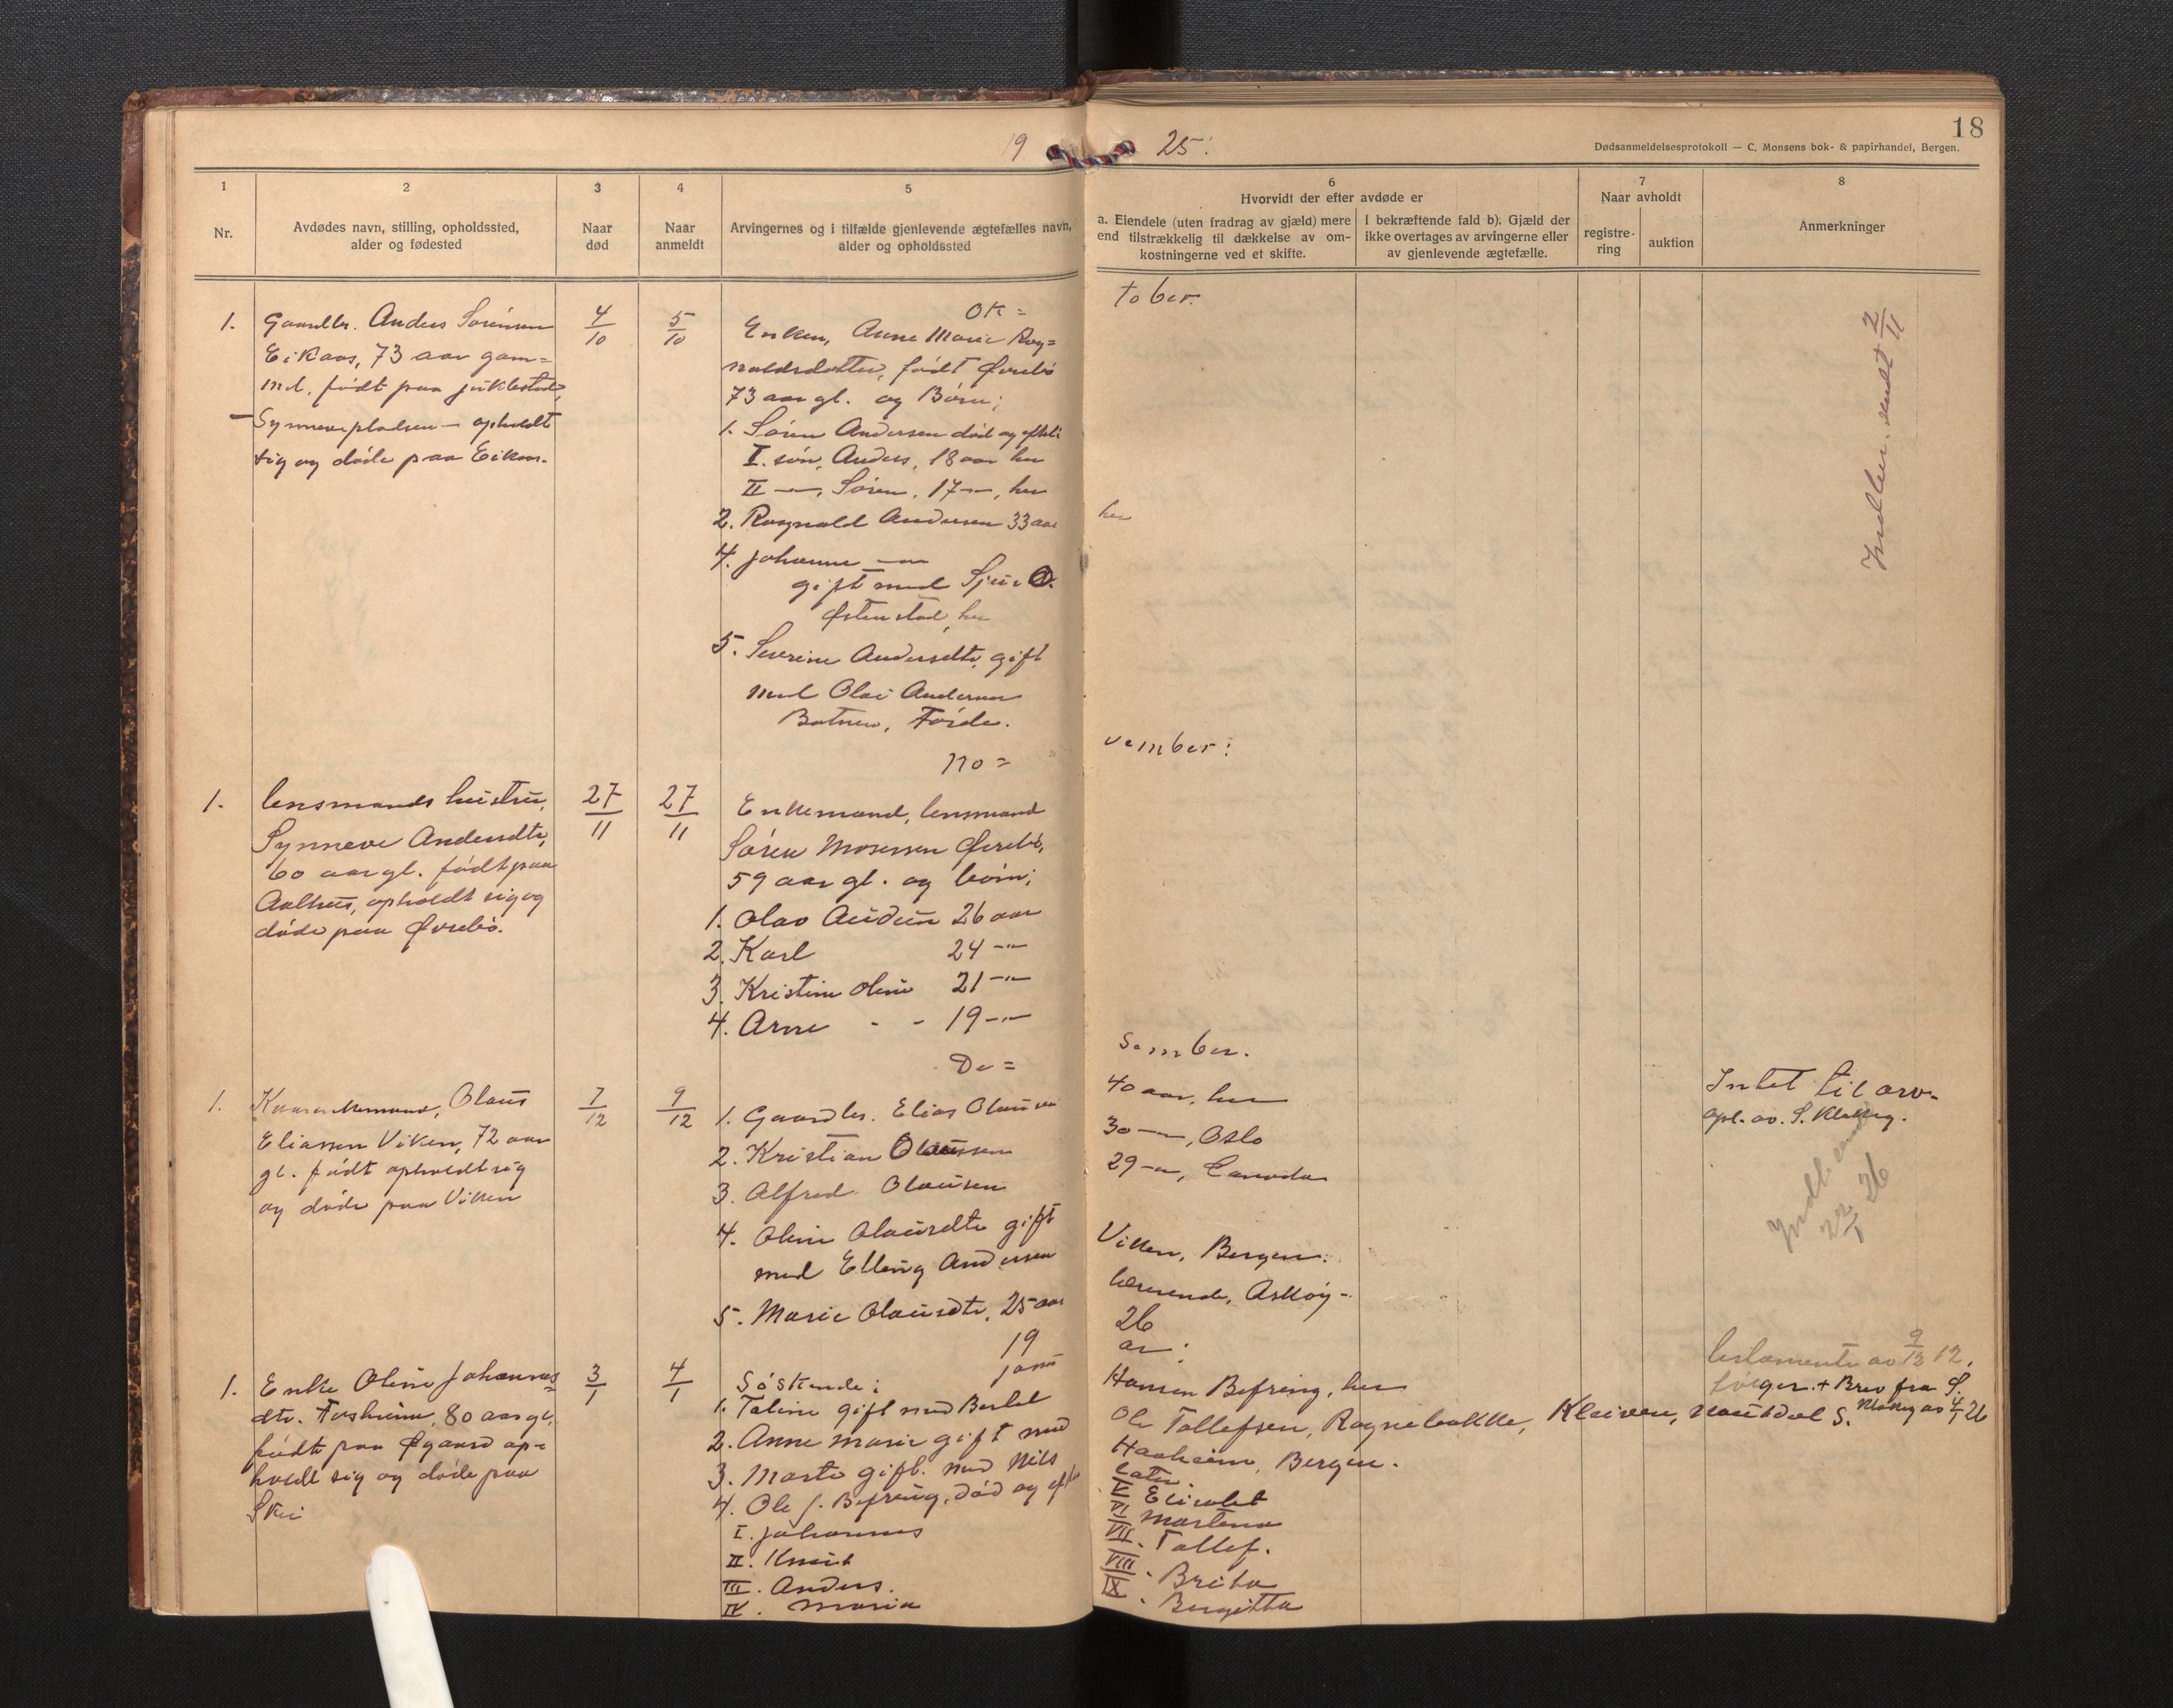 19 25.
18
Dødsanmeldelsesprotokoll — C. Monsens bok- & papirhandel, Bergen.
1
Nr.
2
Avdødes navn, stilling, opholdssted,
alder og fødested
3
Naar
død
4
Naar
anmeldt
5
Arvingernes og i tilfælde gjenlevende ægtefælles navn,
alder og opholdssted
6
Hvorvidt der efter avdøde er
a. Eiendele (uten fradrag av gjæld) mere
end tilstrækkelig til dækkelse av om-
kostningerne ved et skifte.
I bekræftende fald b). Gjæld der
ikke overtages av arvingerne eller
av gjenlevende ægtefælle.
7
Naar avholdt
registre-
ring
auktion
8
Anmerkninger
Ok= tober.
1.
Gaardbr. Anders Sørensen
Eikaas, 73 aar gam=
mel. født paa Juklestad,
— Synnevepladsen — opholdt
sig og døde paa Eikaas.
4/10
5/10
Enken, Anne Marie Rag=
naldsdotter, født Øvrebø
73 aar gl. og Børn;
1. Søren Andersen død og efterl.
I. søn, Anders, 18 aar her
II —"—, Søren, 17 —"—, her
2. Ragnald Andersen 33 aar her
4. Johanne —"—
gift med Sjur O.
Østenstad, her
5. Severine Andersdtr. gift
med Olai Andersen
Botnen, Førde.
Indber. sendt 2/11
No= vember:
1.
Lensmands hustru,
Synneve Andersdtr,
60 aar gl. født paa
Aalhus, opholdt sig og
døde paa Øvrebø.
27/11
27/11
Enkemand, lensmand
Søren Mosessen Øvrebø,
59 aar gl. og børn;
1. Olav Audun 26 aar
2. Karl 24 —"—
3. Kristine Oline 21 —"—
4. Arne - - 19 —"—
De= sember.
1.
Kaarenkemand, Olaus
Eliassen Viken, 72 aar
gl. født opholdt sig
og døde paa Viken
7/12
9/12
1. Gaardbr. Elias Olausen 40 aar, her
2. Kristian Olaussen 30 —"—, Oslo
3. Alfred Olausen 29 —"—, Canada
4. Oline Olausdtr gift
med Elling Andersen Viken, Bergen.
5. Marie Olausdtr, 25 aar lærerinde, Askøy -
Intet til arv.
opl. av S. Klakeg.
Indb. sendt
22/1 26
19 26
Janu ar:
1.
Enke Oline Johannes=
dtr. Forsheim, 80 aar gl.
født paa Øygaard op=
holdt sig og døde paa
Skei
3/1
4/1
Søskende:
1. Taline gift med Bertel Hansen Befring, her
2. Anne Marie gift med Ole Tollefsen, Rognebakke, Kleiven, Naustdal S.
3. Marte gift. med Nils Haaheim, Bergen.
4. Ole J. Befring, død og efter later
I. Johannes
II. Knut
III. Anders.
IV. Maria
V Elisabet
VI Martena
VII. Tollef.
VIII. Brita
IX. Bergitta
testamente av 9/12 12,
følger. + Brev fra S.
Klakeg av 4/1 26